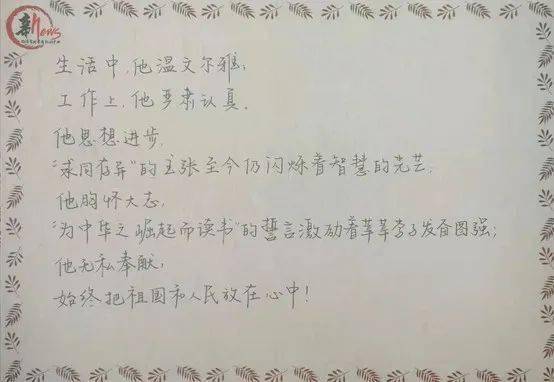 新news
生活中,他温文尔雅;
工作上,他严肃认真。
他思想进步,
“求同存异”的主张至今仍闪烁着智慧的光芒。
他胸怀大志,
“为中华之崛起而读书”的誓言激励着莘莘学子发奋图强;
他无私奉献,
始终把祖国和人民放在心中!